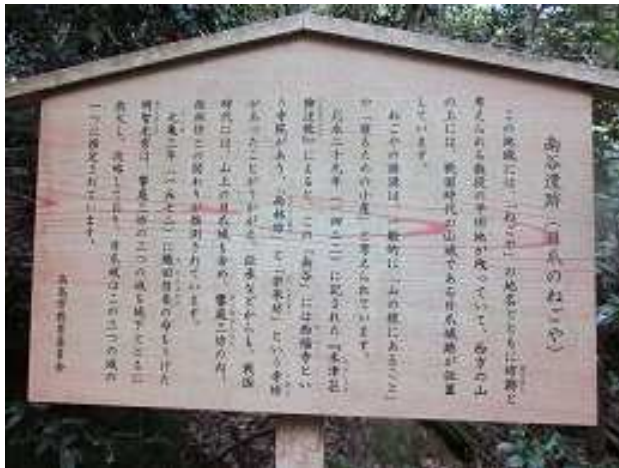 南谷遺跡（日爪のねごや）
この地域には、「ねごや」の地名とともに坊跡と
考えられる数段の平坦地が残っていて、西方の山
の上には、戦国時代の山城である日爪城跡が位置
しています。
ねごやの語源は、一般的は、山の根にあること
や「寝るための小屋」と考えられています。
応永二十九年（一四二二）に記された『木津荘
検注帳』によると、この「南谷」には西福寺とい
う寺院があり、
があったことがうかがえ、伝承などからも、戦国
時代には、山上の日爪城も含め、饗庭三坊の内、
西林坊との関わりが推測されています。
元亀三年（一五七二）に織田信長の命をうけた
明智光秀は、饗庭三坊の三つの城を城下とともに
放火し、攻略しており、日爪城はこの三つの城の
一つに推定されています。
高島市教育委員会